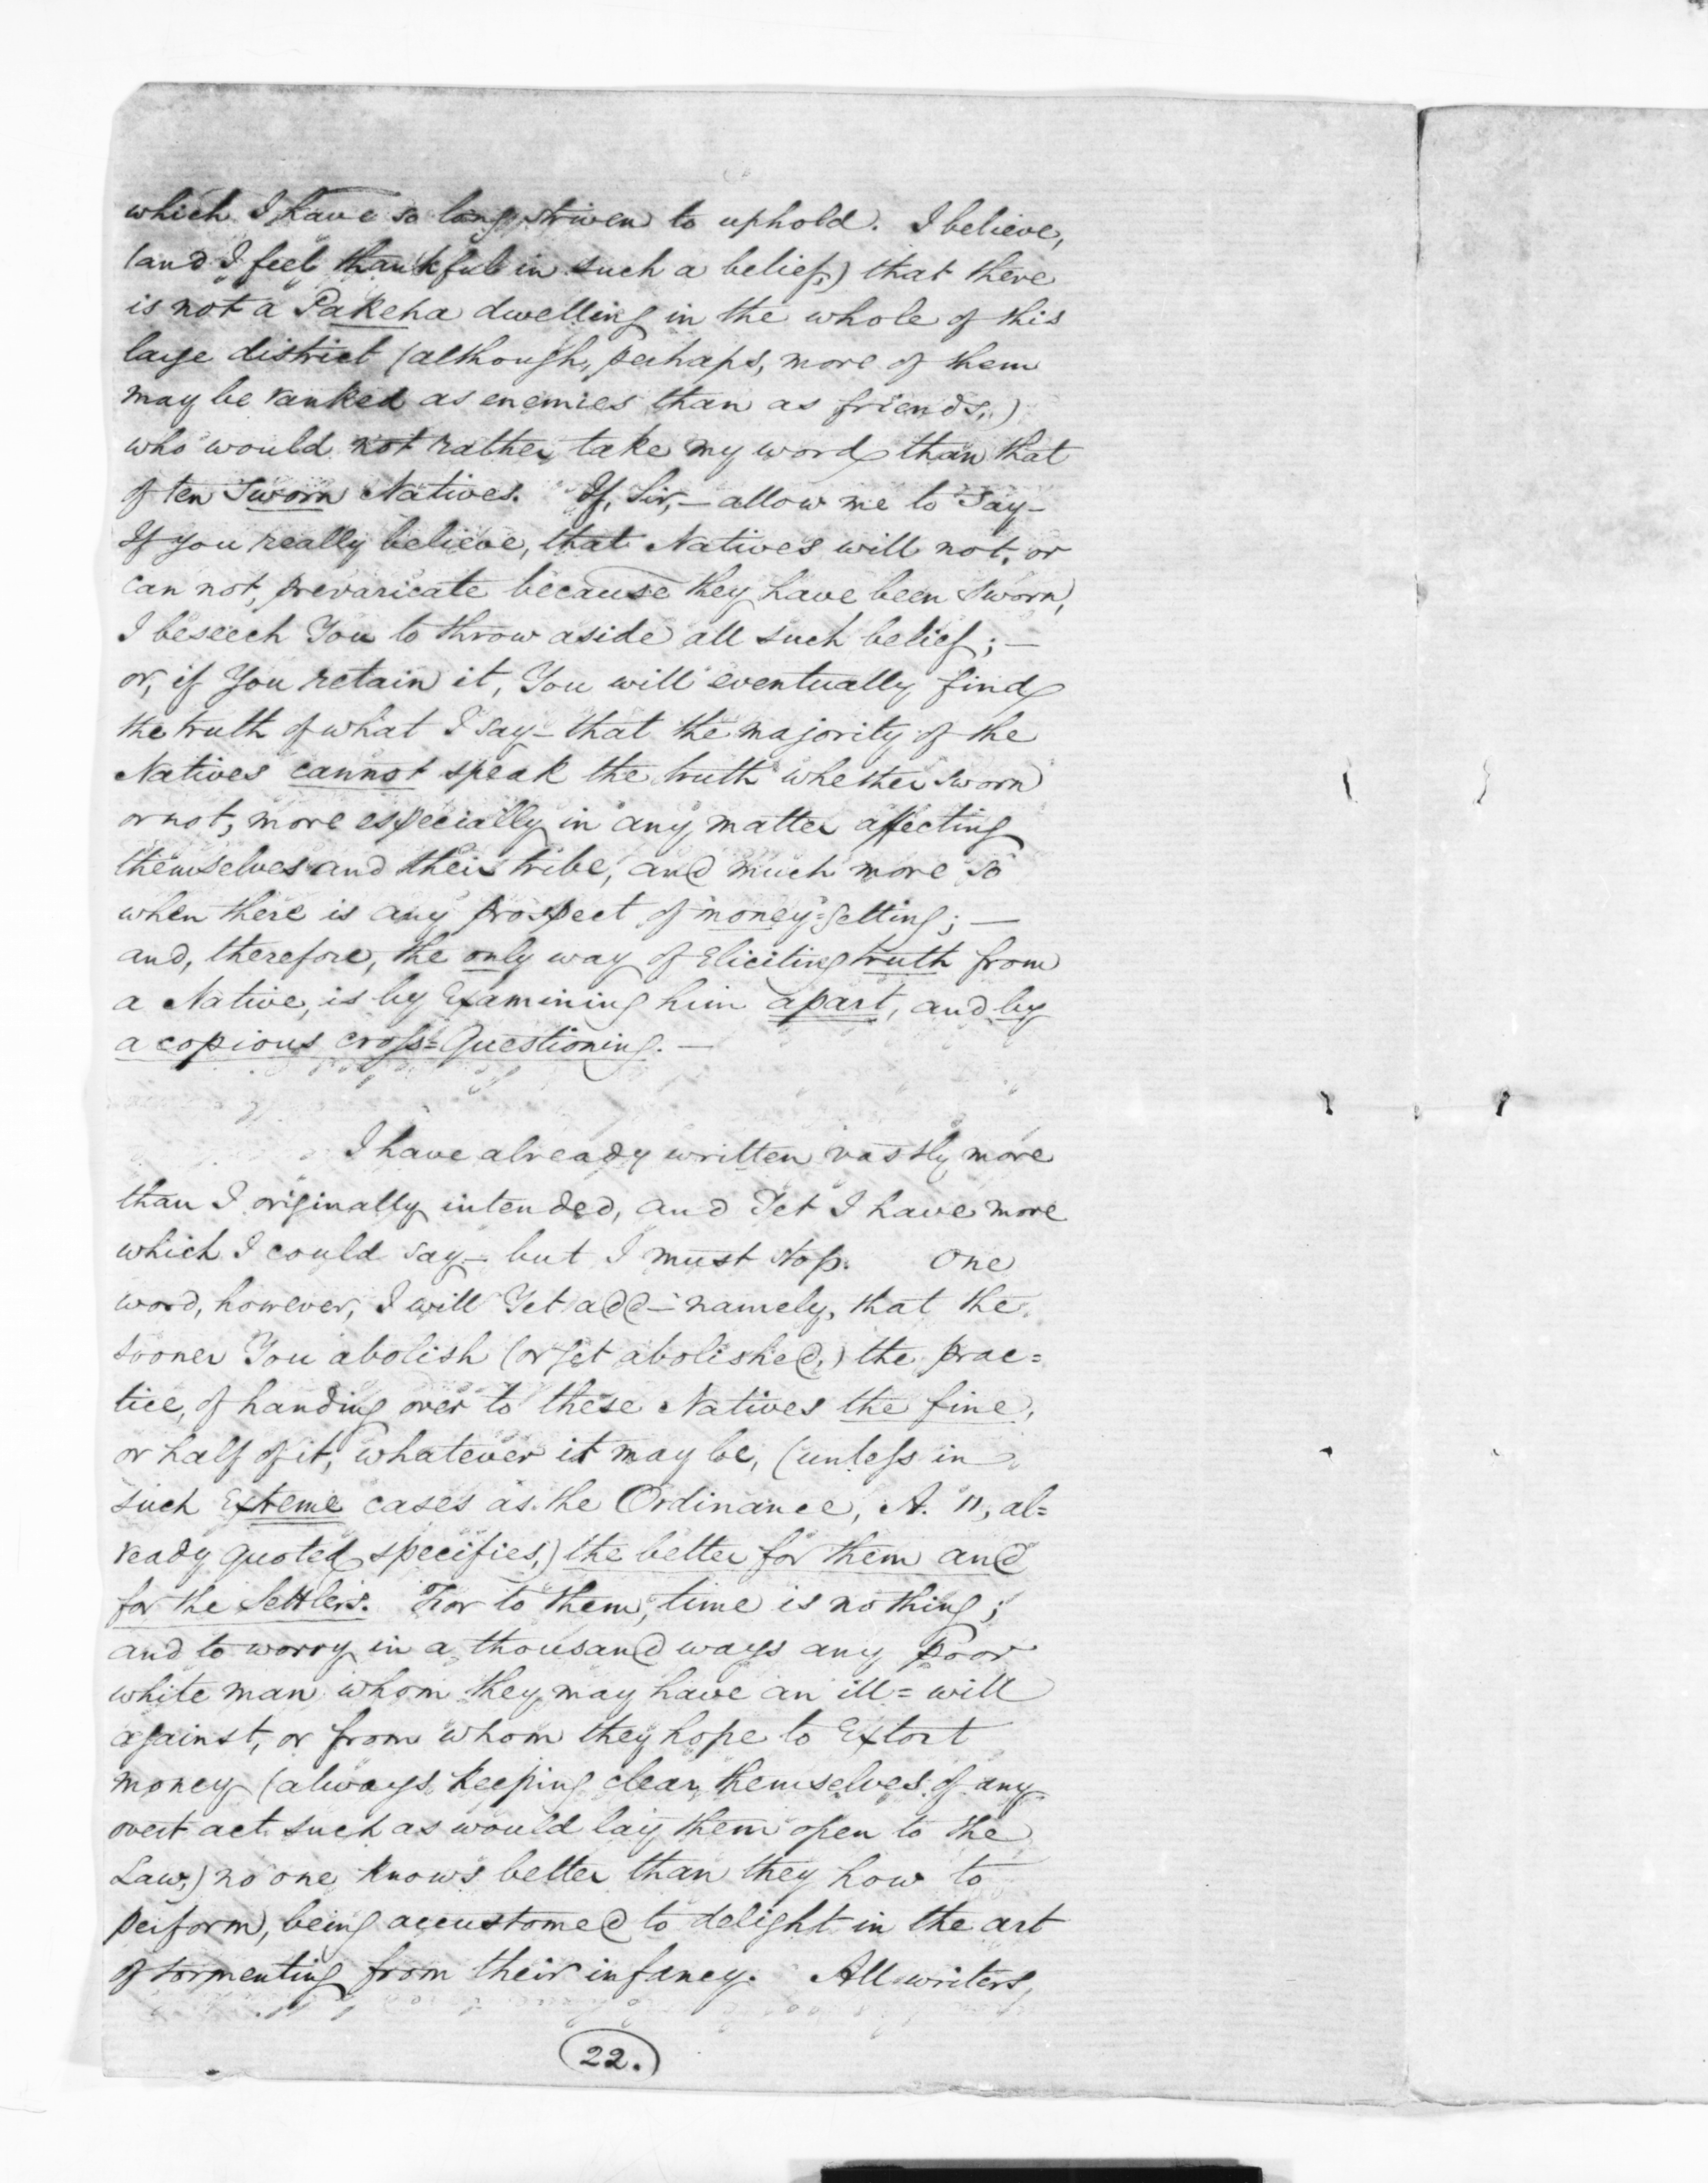 which I have so long striven to uphold. I believe,
(and I feel thankful in such a belief,) that there
is not a Pakeha dwelling in the whole of this
large district (although, perhaps, more of them
may be ranked as enemies than as friends,)
who would not rather take my word than that
of ten sworn Natives. If, Sir,— allow me to say—
If you really believe, that Natives will not, or
can not, prevaricate because they have been sworn,
I beseech You to throw aside all such belief; —
or, if You retain it, You will eventually find
the truth of what I say— that the majority of the
Natives cannot speak the truth whether sworn
or not, more especially in any matter affecting
themselves and their tribe, and much more so
when there is any prospect of money=getting; —
and, therefore, the only way of Eliciting truth from
a Native, is by Examining him apart, and by
a copious cross=Questioning. —
I have already written vastly more
than I originally intended, and Yet I have more
which I could say— but I must stop. One
word, however, I will Yet add— namely, that the
sooner You abolish (or get abolished,) the prac=
tice, of handing over to these Natives the fine,
or half of it, whatever it may be, (unless in
such Exteme cases as the Ordinance, A. 11, al=
ready quoted specifies,) the better for them and
for the Settlers. For to them, time is nothing;
and to worry in a thousand ways any poor
white man whom they may have an ill=will
against, or from whom they hope to Extort
money (always keeping clear themselves of any
overt act such as would lay them open to the
Law,) no one knows better than they how to
perform, being accustomed to delight in the art
of tormenting from their infancy. All writers,
22.